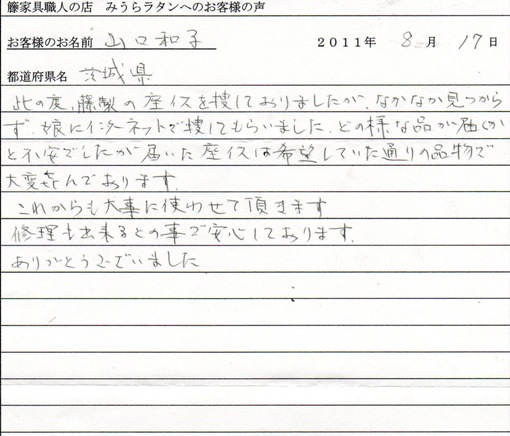 籐家具職人の店　みうらラタンへのお客様の声
お客様のお名前　山口和子　２０１１年　8　月　17　日
都道府県名　茨城県
此の度、藤製の座イスを捜しておりましたが、なかなか見つから
ず、娘にインターネットで捜してもらいました、どの様な品が届くか
と不安でしたが届いた座イスは希望していた通りの品物で
大変喜んでおります。
これからも大事に使わせて頂きます
修理も出来るとの事で安心しております。
ありがとうございました